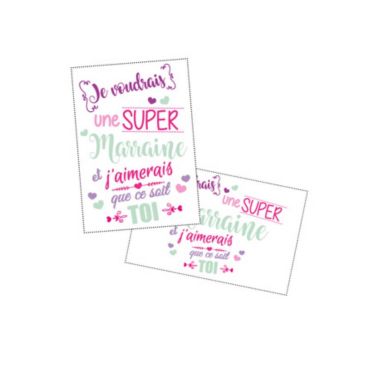 Je voudrais
une SUPER
Marraine
et j'aimerais
que ce soit
TOI
voudrais
une SUPER
Marraine
et j'aimerais
que ce soit
TOI